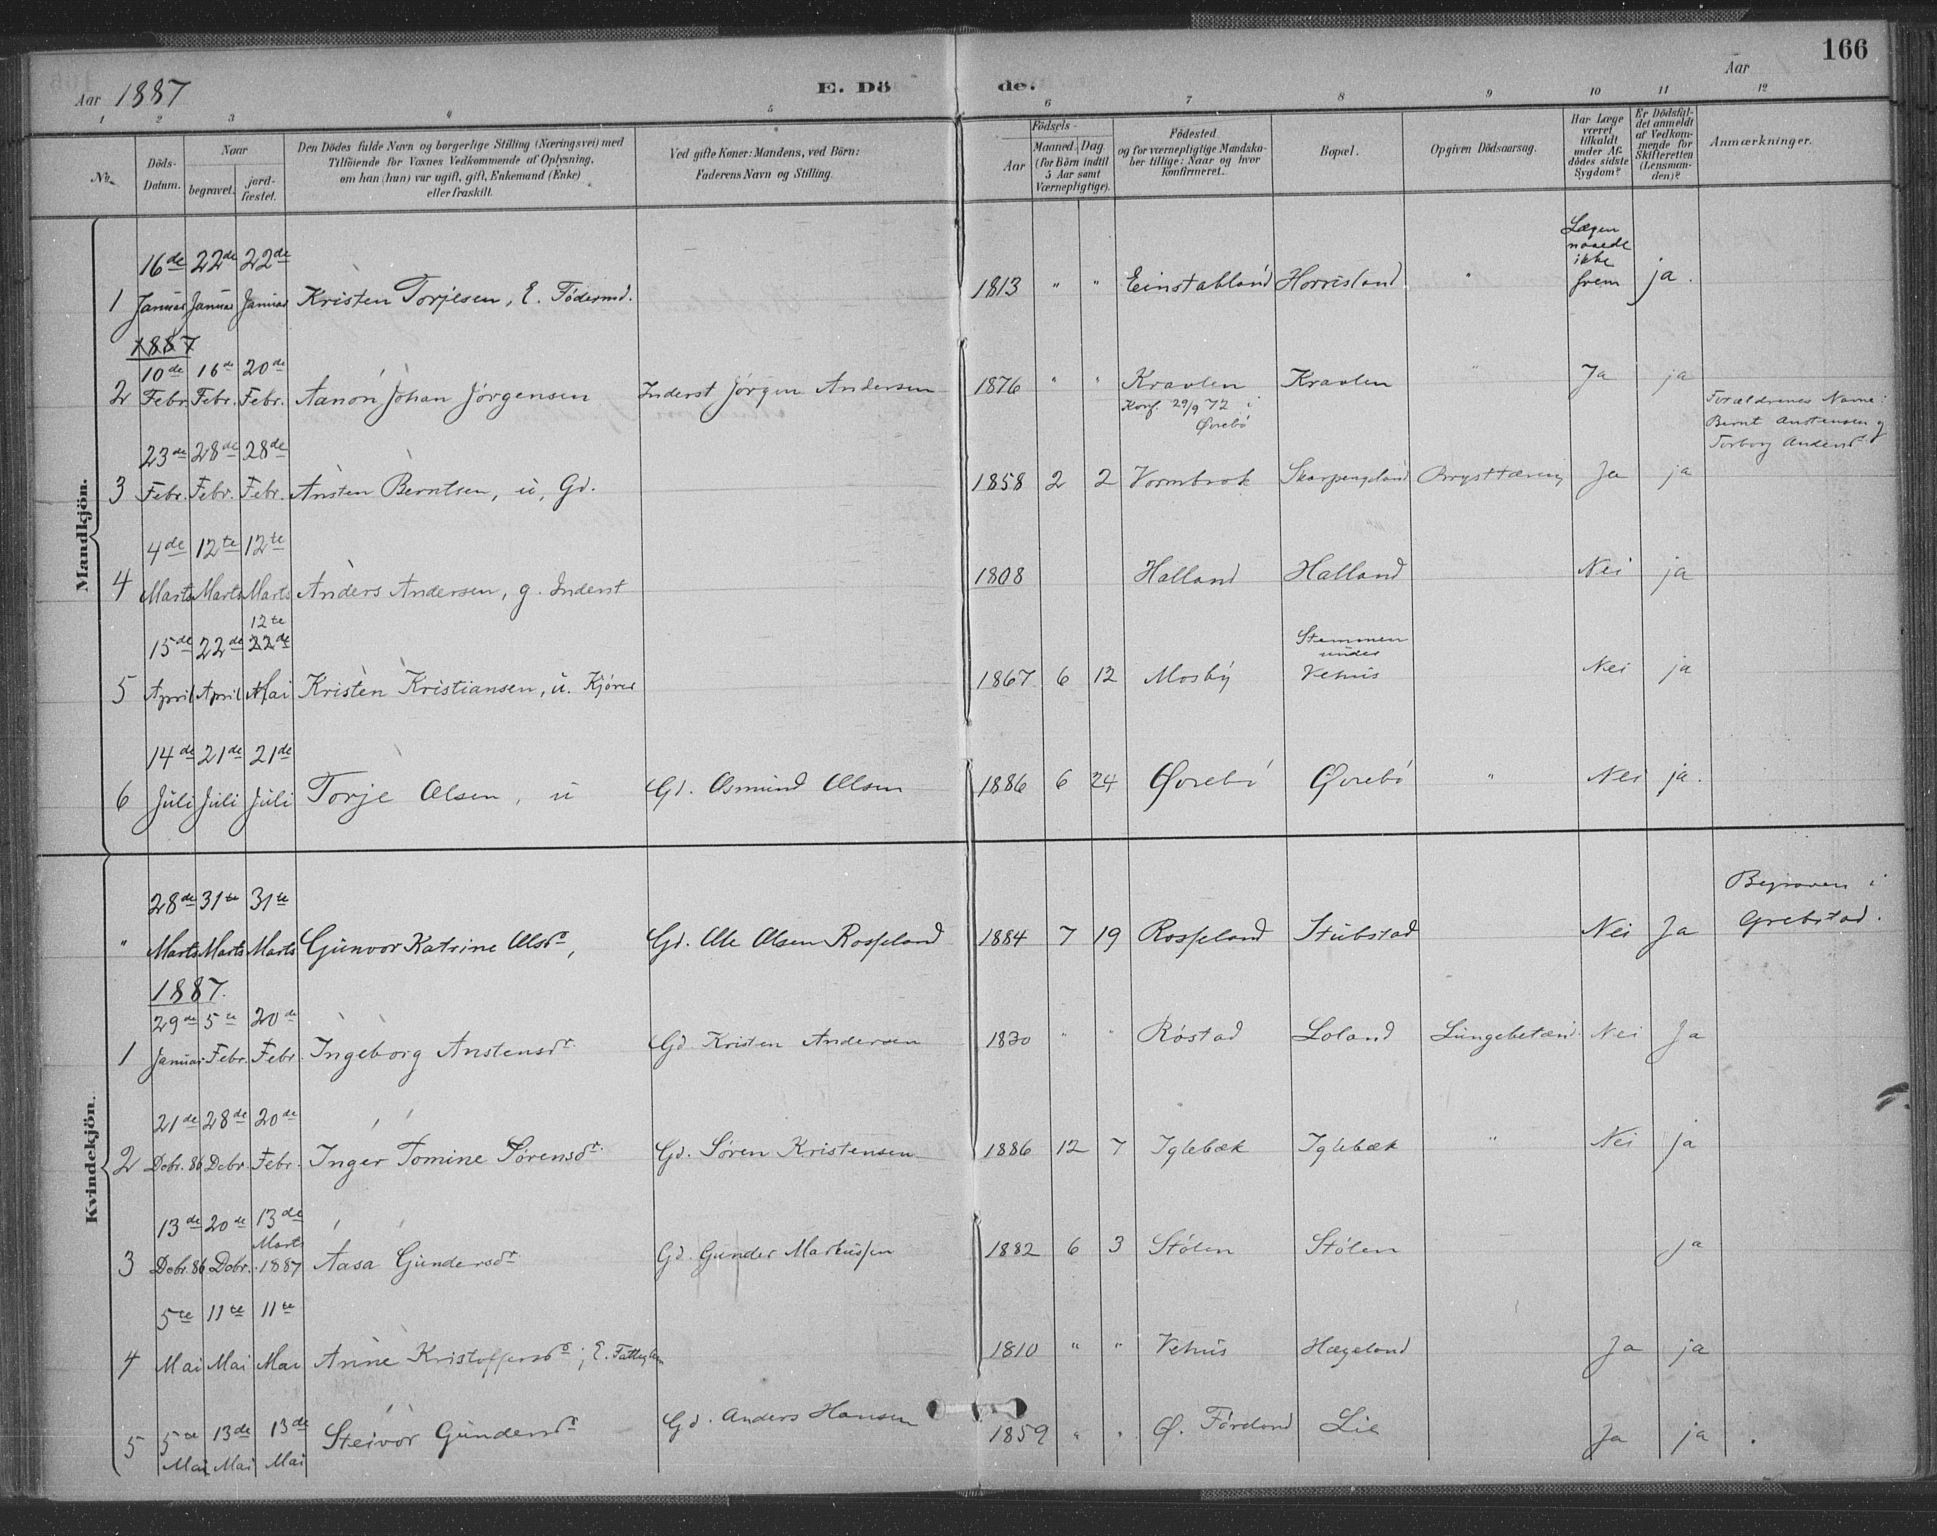 166
Aar 1887 E. Dö de. Aar
1 2 3 4 5 6 7 8 9 10 11 12
No. Döds-Datum. Naar begravet. jordfæstet. Den Dödes fulde Navn og borgerlige Stilling (Næringsvei) med Tilföiende for Voxnes Vedkommende af Oplysning, om han (hun) var ugift, gift, Enkemand (Enke) eller fraskilt. Ved gifte Koner: Mandens, ved Börn: Faderens Navn og Stilling. Födsels- Aar Maaned. Dag. (for Börn indtil 5 Aar samt Værnepligtige). Födested og for værnepligtige Mandskaber tillige: Naar og hvor konfirmeret. Bopæl. Opgiven Dödsaarsag. Har Læge været tilkaldt under Afdödes sidste Sygdom? Er Dödsfaldet anmeldt af Vedkommende for Skifteretten (Lensmanden)? Anmærkninger.
Mandkjön.
1 16de Januar 22de Januar 22de Januar Kristen Torjesen, E. Födermd. 1813 " " Einstabland Horrisland " Lægen naaede ikke frem ja.
1887
2 10de Febr. 16de Febr. 20de Febr. Aanon Johan Jörgensen Inderst Jörgen Andersen 1876 " " Kravlen Kravlen " Ja ja
Konf. 29/9 72 i Øvrebö
3 23de Febr. 28de Febr. 28de Febr. Ansten Berntsen, u, Gd. 1858 2 2 Vormbrok Skarpengland Brysttæring Ja ja Forældrenes Navne: Bernt Anstensen og Torborg Andersd.
4 4de Marts 12te Marts 12te Marts Anders Andersen, g. Inderst 1808 Halland Halland Nei ja
5 15de April 22de April 12te 22de Mai Kristen Kristiansen, u. 1867 6 12 Mosby Stemmen under Vehus Nei ja
6 14de Juli 21de Juli 21de Juli Torje Olsen, u Gd. Osmund Olsen 1886 6 24 Øvrebö Øvrebö " Nei ja.
Kvindekjön.
" 28de Marts 31te Marts 31te Marts Gunvor Katrine Olsdr, Gd. Ole Olsen Rosseland 1884 7 19 Rosseland Stubstad Nei Ja Begraven i Grebstad.
1887.
1 29de Januar 5te Febr. 20de Febr. Ingeborg Anstensdr. Gd. Kristen Andersen 1830 " " Röstad Loland Lungebetænd. Nei Ja
2 21de Debr. 86 28de Debr. 20de Febr. Inger Tomine Sörensdr. Gd. Sören Kristensen 1886 12 7 Iglebæk Iglebæk " Nei ja
3 13de Debr. 86 20de Debr. 13de Marts 1887 Aasa Gundersdr Gd. Gunder Markussen 1882 6 3 Stölen Stölen ja
4 5te Mai 11te Mai 11te Mai Anne Kristoffersdr; E. Fattiglem 1810 " " Vehus Hægeland Ja ja
5 5te Mai 13de Mai 13de Mai Steivor Gundersdr Gd. Anders Hansen 1859 " " Ø. Lie Ja ja